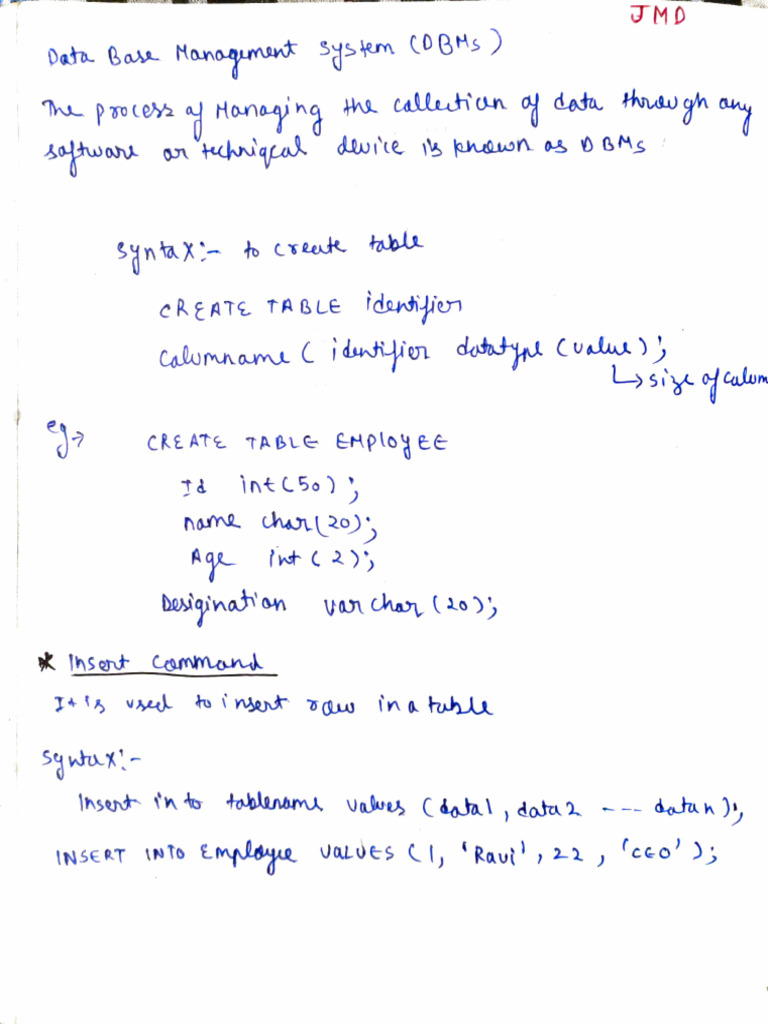 JMD
Data Base Management System (DBMs)
The process of Managing the collection of data through any
software or techniqcal device is known as DBMs
Syntax:- to create table
CREATE TABLE identifier
Calumname ( identifier datatype (value));
↳ size of calum
eg→ CREATE TABLE EMPloyEE
Id int(50);
name char(20);
Age int(2);
Desigination varchar(20);
* Insert Command
It is used to insert row in a table
Syntax:-
Insert in to tablename values (data1, data2 --- data n);
INSERT INTO Employee VALUES (1, 'Ravi', 22, 'CEO');